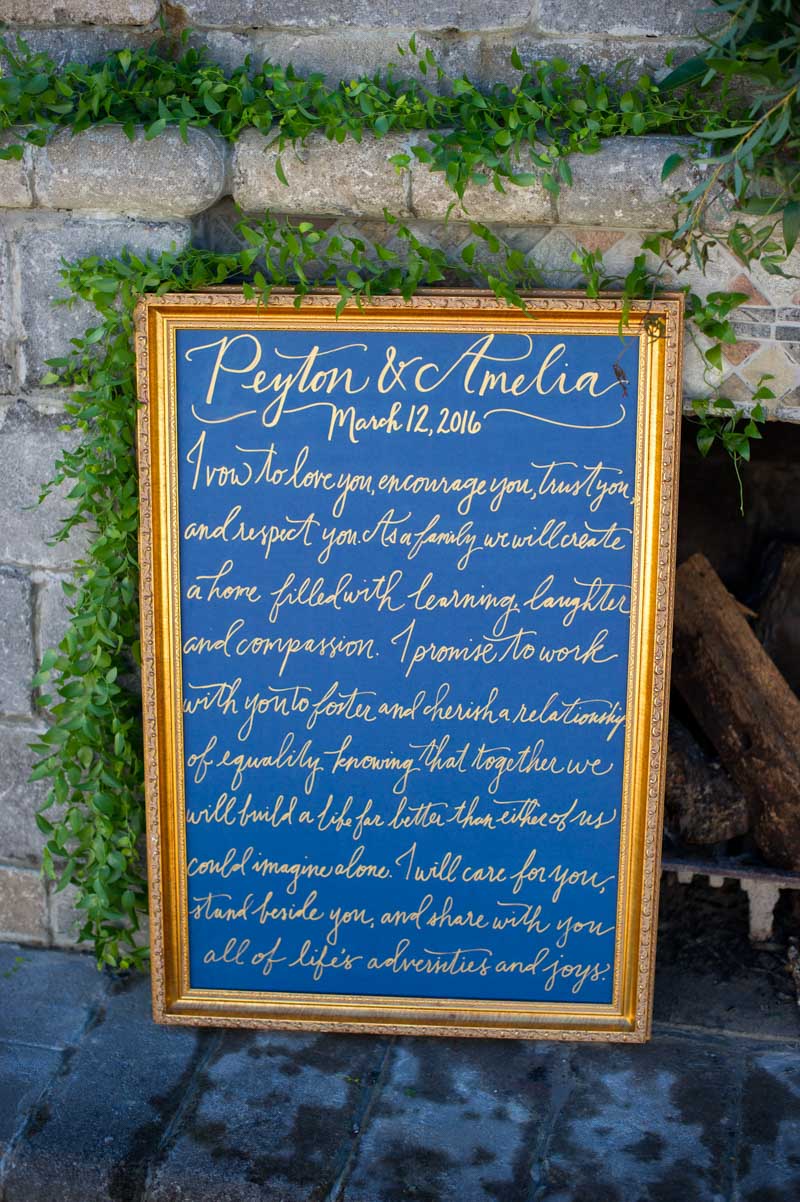 Peyton & Amelia
March 12, 2016
I vow to love you, encourage you, trust you,
and respect you. As a family we will create
a home filled with learning, laughter
and compassion. I promise to work
with you to foster and cherish a relationship
of equality knowing that together we
will build a life far better than either of us
could imagine alone. I will care for you,
stand beside you, and share with you
all of life's adversities and joys.